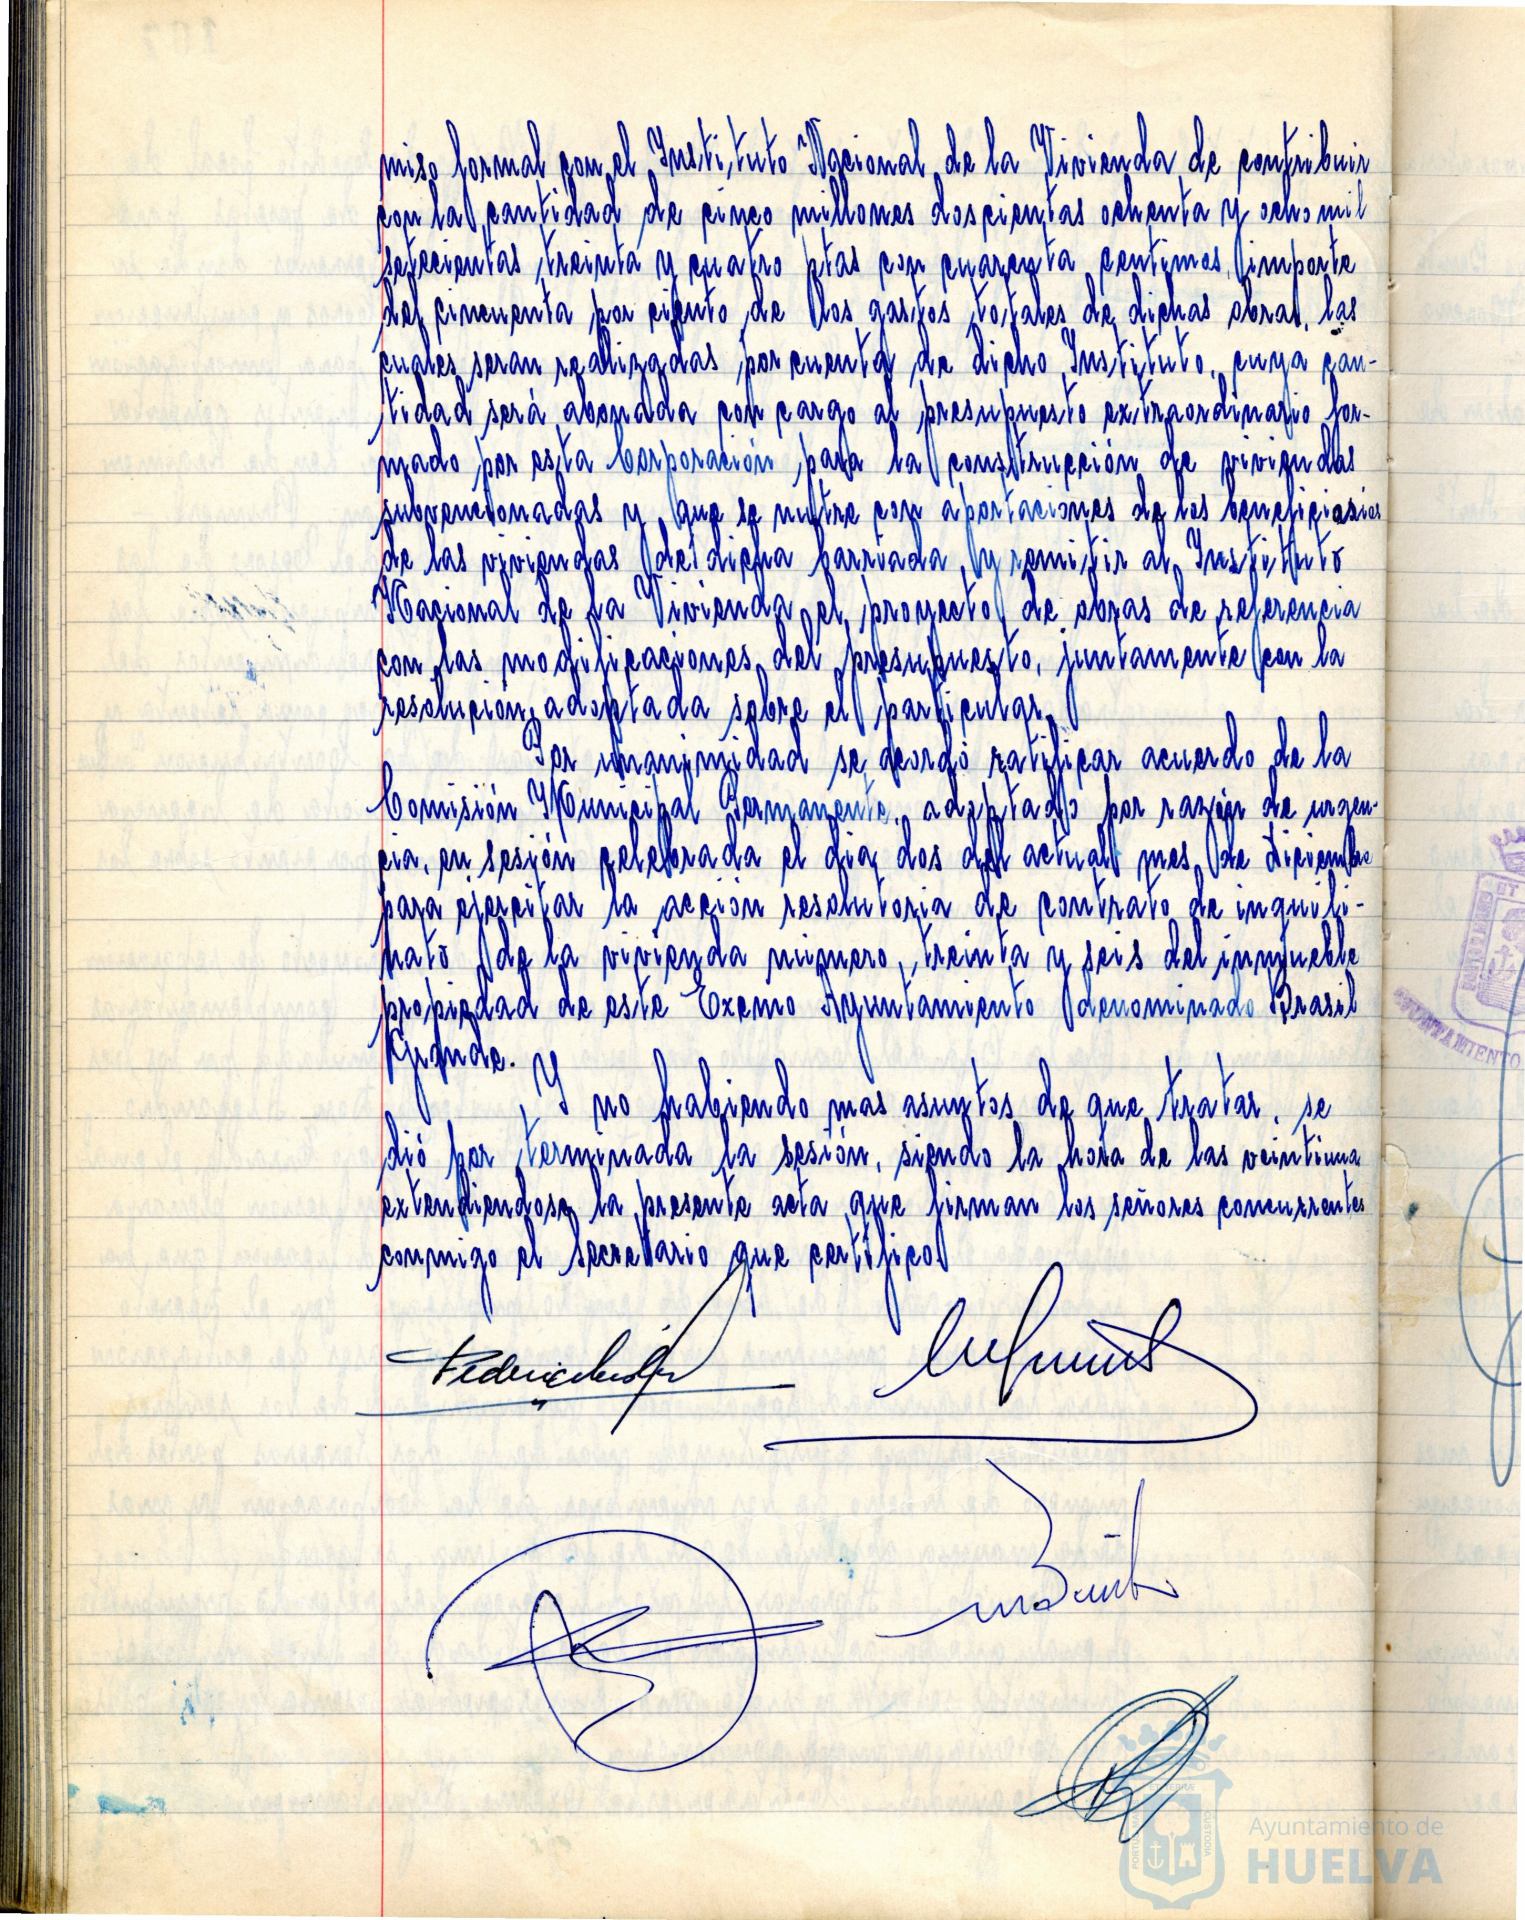 miso formal con el Instituto Nacional de la Vivienda de contribuir
con la cantidad de cinco millones doscientas ochenta y ocho mil
setecientas treinta y cuatro ptas con cuarenta centimos, importe
del cincuenta por ciento de los gastos totales de dichas obras, las
cuales seran realizadas por cuenta de dicho Instituto, cuya can-
tidad será abonada con cargo al presupuesto extraordinario for-
mado por esta Corporación para la construcción de viviendas
subvencionadas y que se nutre con aportaciones de los beneficiarios
de las viviendas de dicha barriada y remitir al Instituto
Nacional de la Vivienda el proyecto de obras de referencia
con las modificaciones del presupuesto, juntamente con la
resolución adoptada sobre el particular.
Por unanimidad se acordó ratificar acuerdo de la
Comisión Municipal Permanente, adoptado por razón de urgen-
cia, en sesión celebrada el dia dos del actual mes de diciembre
para ejercitar la acción resolutoria de contrato de inquili-
nato de la vivienda número treinta y seis del inmueble
propiedad de este Excmo Ayuntamiento denominado Brasil
Grande.
Y no habiendo mas asuntos de que tratar, se
dió por terminada la sesión, siendo la hora de las veintiuna
extendiendose la presente acta que firman los señores concurrentes
conmigo el secretario que certifico.
AYUNTAMIENTO
Ayuntamiento de
HUELVA